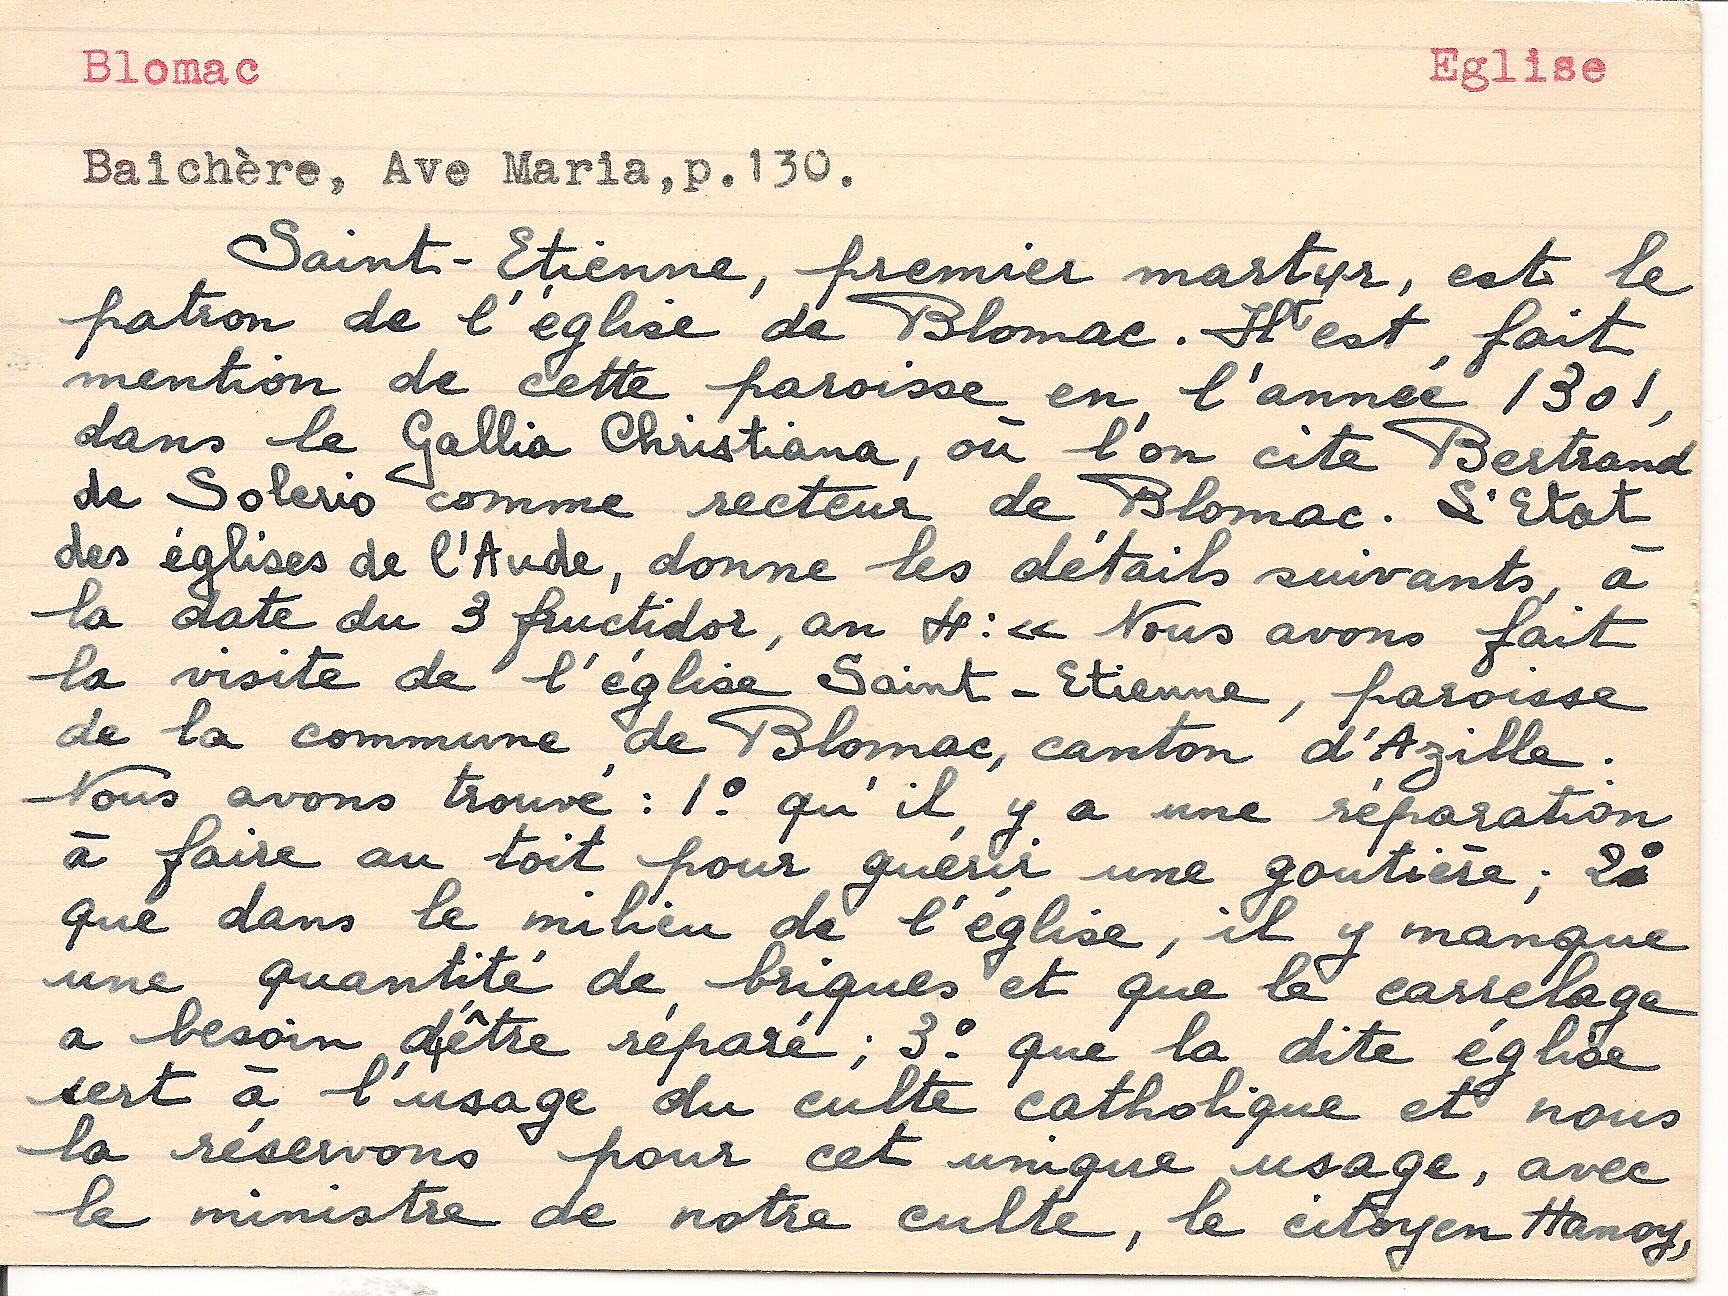 Blomac Eglise
Baichère, Ave Maria, p.130.
Saint-Etienne, premier martyr, est le
patron de l'église de Blomac. Il est fait
mention de cette paroisse en l'année 1301,
dans le Gallia Christiana, où l'on cite Bertrand
de Solerio comme recteur de Blomac. L'Etat
des églises de l'Aude, donne les détails suivants, à
la date du 3 fructidor, an 4: « Nous avons fait
la visite de l'église Saint-Etienne, paroisse
de la commune de Blomac, canton d'Azille.
Nous avons trouvé : 1° qu'il y a une réparation
à faire au toit pour guérir une goutière ; 2°
que dans le milieu de l'église, il y manque
une quantité de briques et que le carrelage
a besoin d'être réparé ; 3° que la dite église
sert à l'usage du culte catholique et nous
la réservons pour cet unique usage, avec
le ministre de notre culte, le citoyen Hanoy,